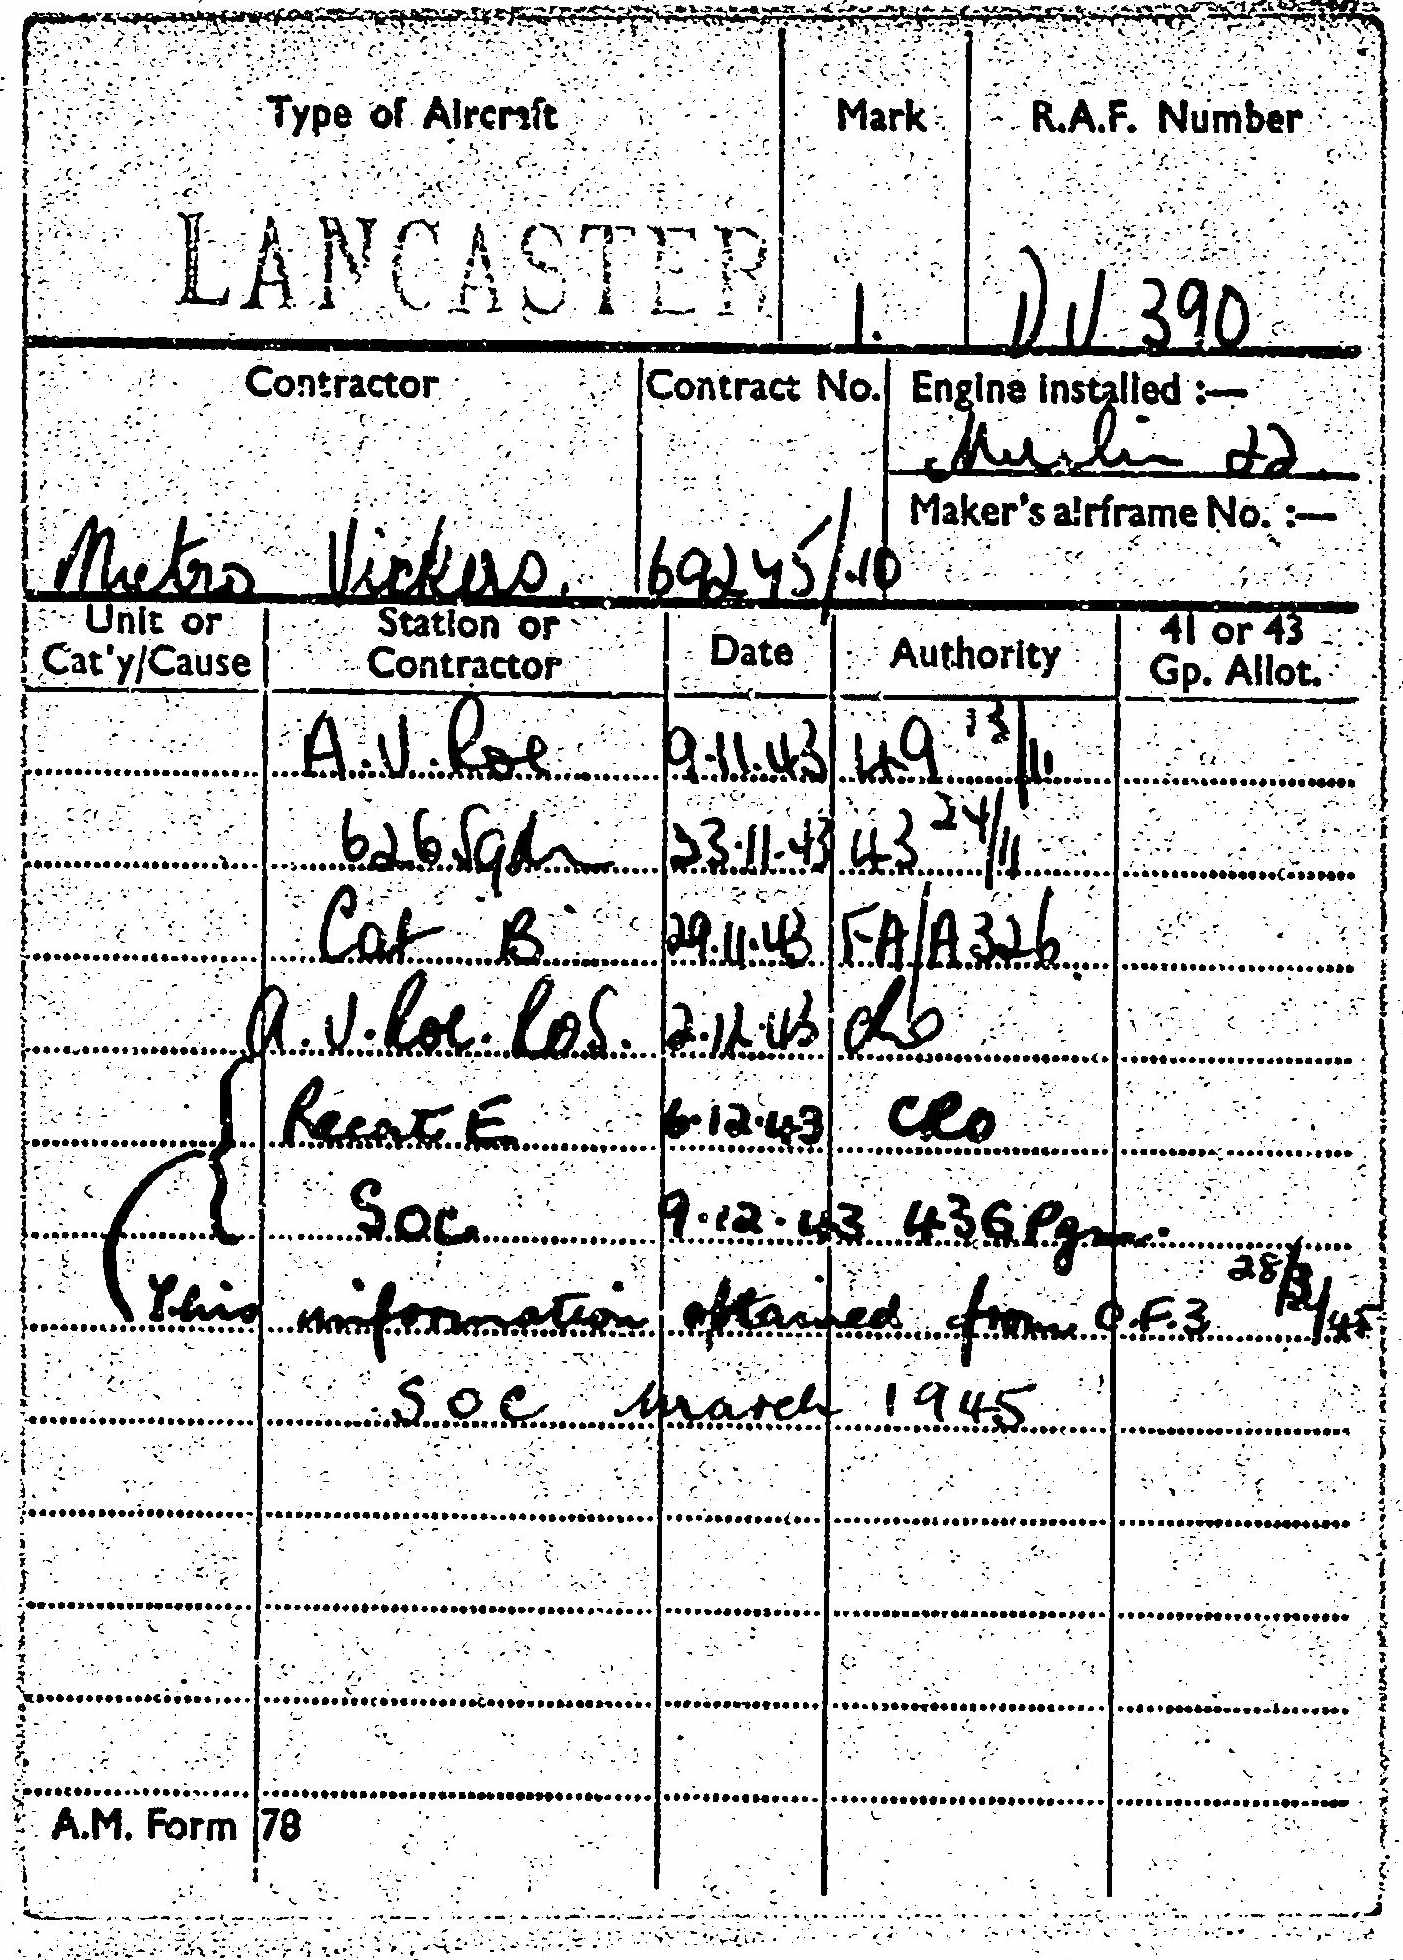 Type of Aircraft Mark R.A.F. Number
LANCASTER 1. DV 390
Contractor Contract No. Engine installed :—
Merlin 22.
Maker's airframe No. :—
Metro Vickers. 69245/10
Unit or Station or Date Authority 41 or 43
Cat'y/Cause Contractor Gp. Allot.
A.V.Roe 9.11.43 49 13/11
626 Sqdn 23.11.43 43 24/11
Cat B 29.11.43 FA/A326
A.V.Roe. RoS. 2.12.43 do
Recat E 6.12.43 CRO
Soc 9.12.43 43G Pgm.
This information obtained from O.F.3
SOC March 1945
A.M. Form 78